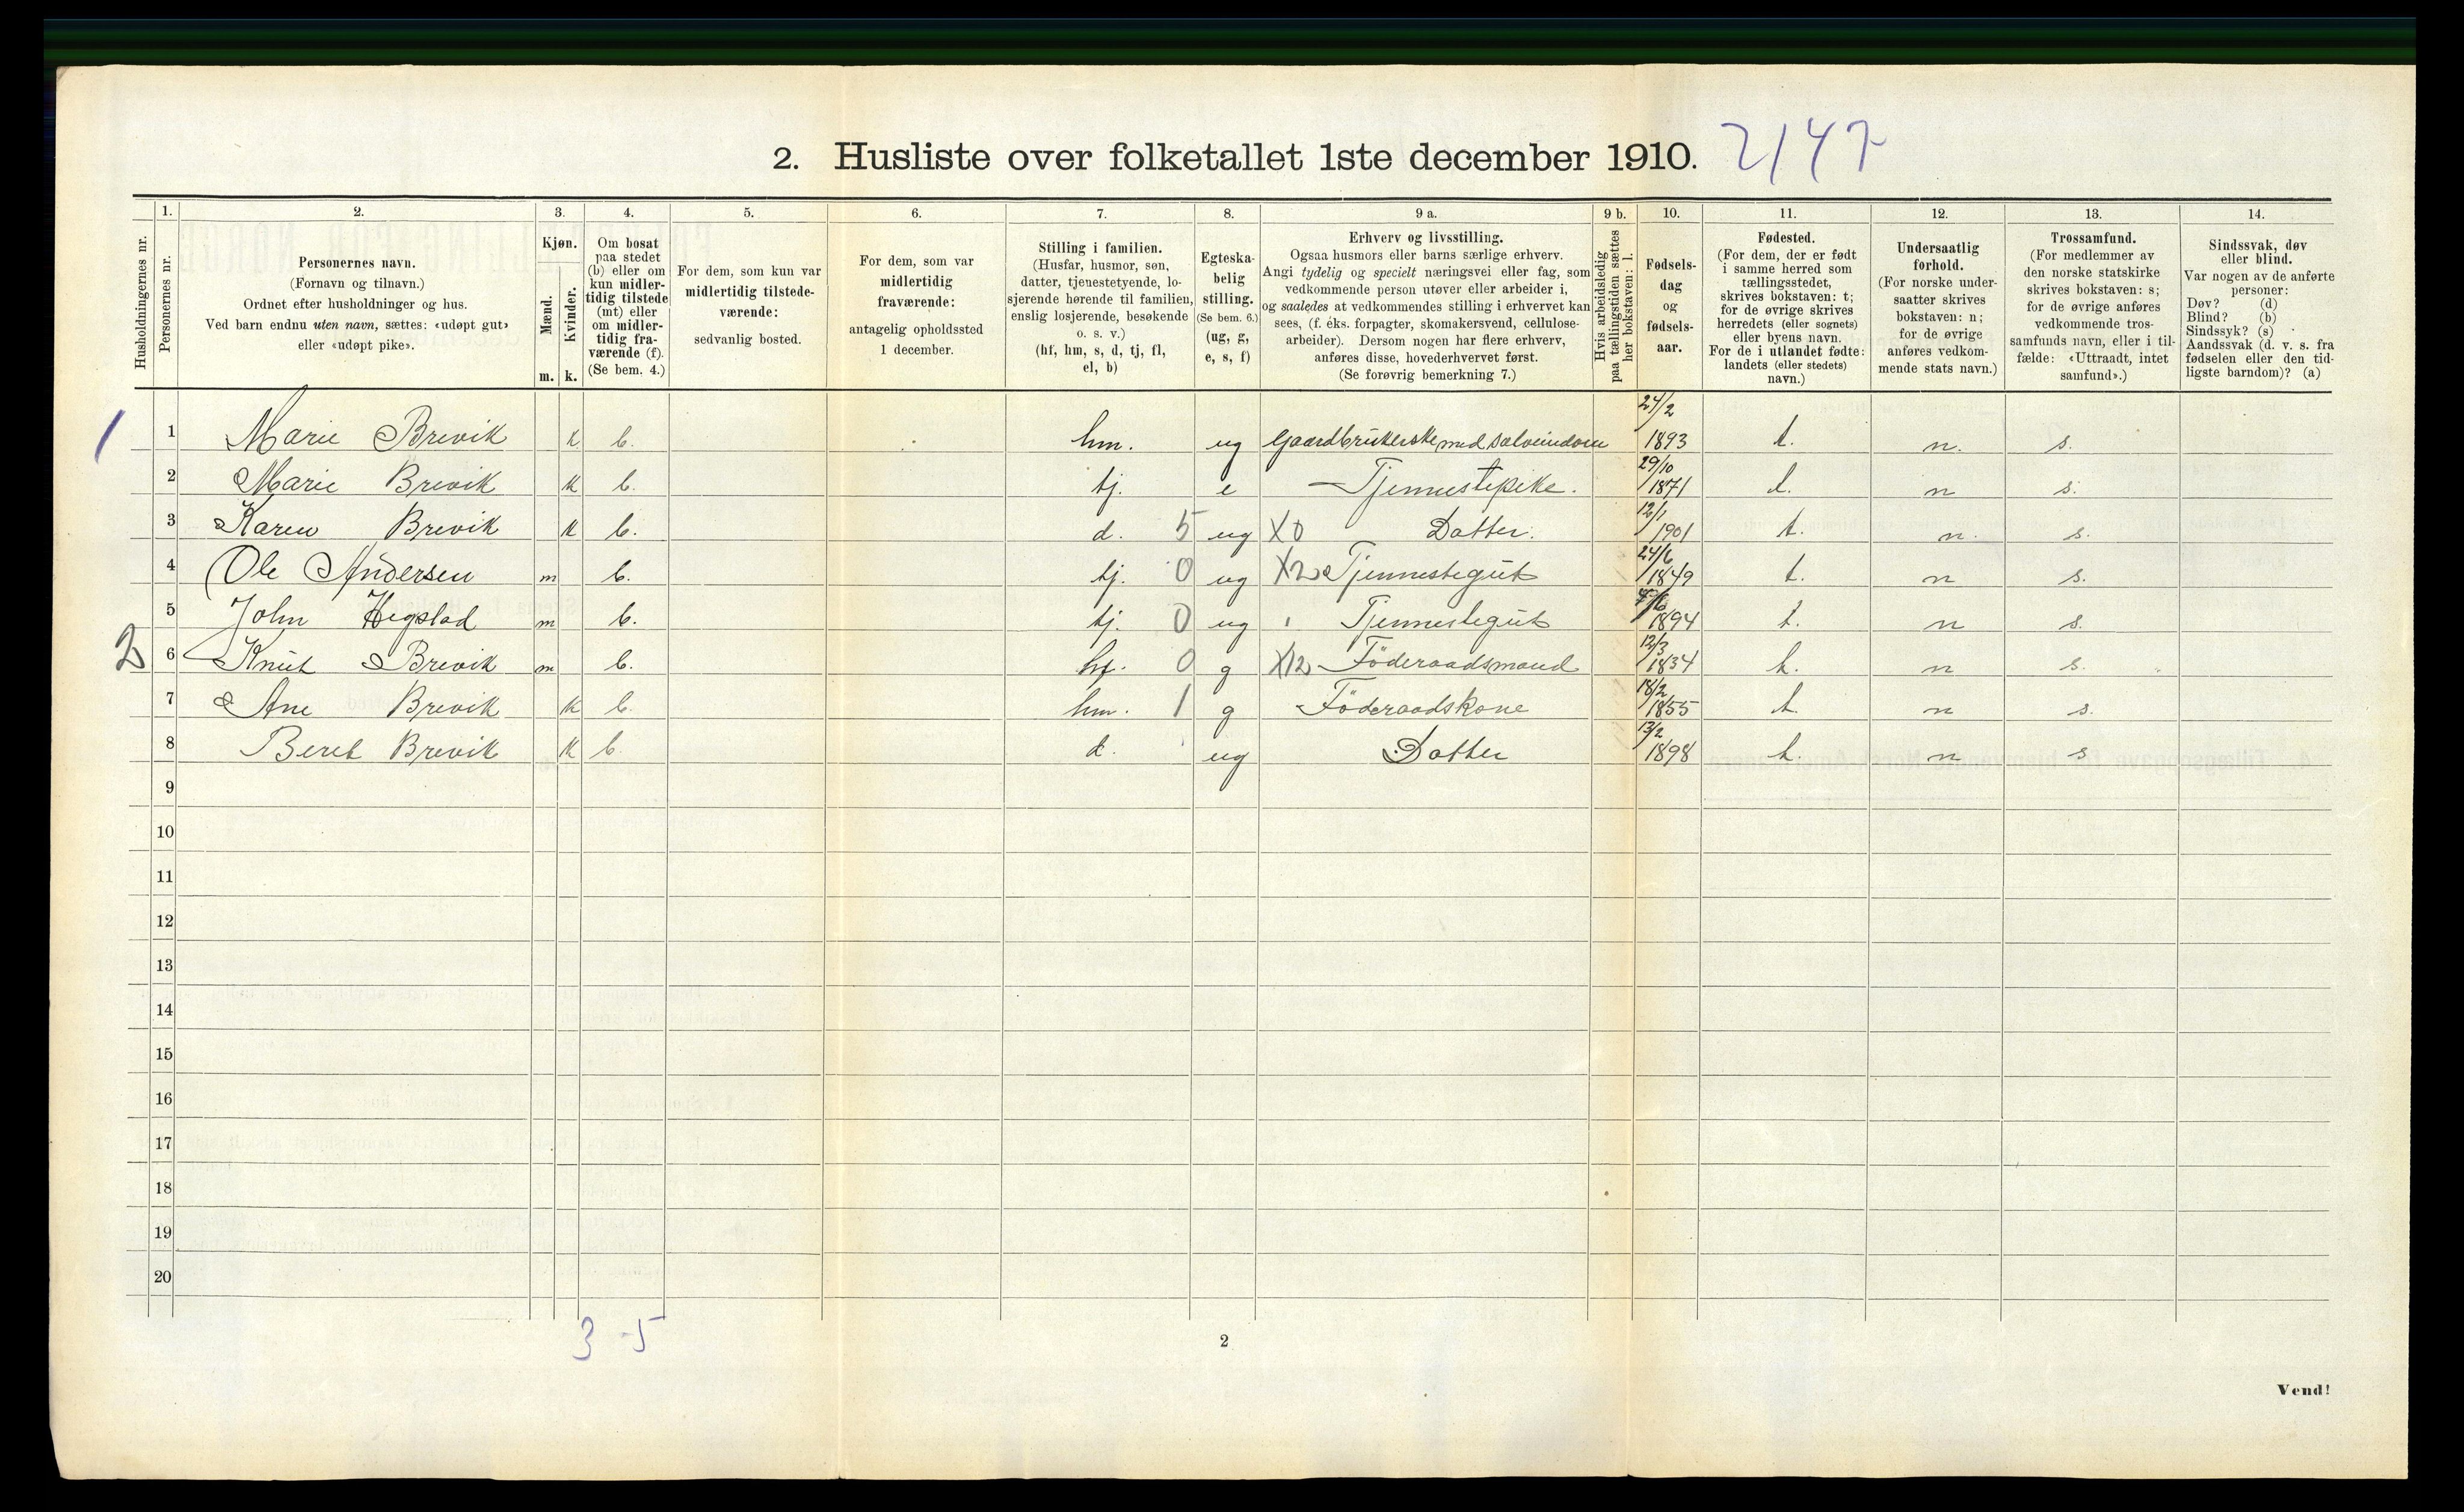 2. Husliste over folketallet 1ste december 1910. 2147
1. 2. 3. 4. 5. 6. 7. 8. 9 a. 9 b. 10. 11. 12. 13. 14.
Husholdningernes nr.
Personernes nr.
Personernes navn.
(Fornavn og tilnavn.)
Ordnet efter husholdninger og hus.
Ved barn endnu uten navn, sættes: «udøpt gut»
eller «udøpt pike».
Kjøn.
Mænd.
Kvinder.
m. k.
Om bosat
paa stedet
(b) eller om
kun midler-
tidig tilstede
(mt) eller
om midler-
tidig fra-
værende (f).
(Se bem. 4.)
For dem, som kun var
midlertidig tilstede-
værende:
sedvanlig bosted.
For dem, som var
midlertidig
fraværende:
antagelig opholdssted
1 december.
Stilling i familien.
(Husfar, husmor, søn,
datter, tjenestetyende, lo-
sjerende hørende til familien,
enslig losjerende, besøkende
o. s. v.)
(hf, hm, s, d, tj, fl,
el, b)
Egteska-
belig
stilling.
(Se bem. 6.)
(ug, g,
e, s, f)
Erhverv og livsstilling.
Ogsaa husmors eller barns særlige erhverv.
Angi tydelig og specielt næringsvei eller fag, som
vedkommende person utøver eller arbeider i,
og saaledes at vedkommendes stilling i erhvervet kan
sees, (f. éks. forpagter, skomakersvend, cellulose-
arbeider). Dersom nogen har flere erhverv,
anføres disse, hovederhvervet først.
(Se forøvrig bemerkning 7.)
Hvis arbeidsledig
paa tællingstiden sættes
her bokstaven: l.
Fødsels-
dag
og
fødsels-
aar.
Fødested.
(For dem, der er født
i samme herred som
tællingsstedet,
skrives bokstaven: t;
for de øvrige skrives
herredets (eller sognets)
eller byens navn.
For de i utlandet fødte:
landets (eller stedets)
navn.)
Undersaatlig
forhold.
(For norske under-
saatter skrives
bokstaven: n;
for de øvrige
anføres vedkom-
mende stats navn.)
Trossamfund.
(For medlemmer av
den norske statskirke
skrives bokstaven: s;
for de øvrige anføres
vedkommende tros-
samfunds navn, eller i til-
fælde: «Uttraadt, intet
samfund».)
Sindssvak, døv
eller blind.
Var nogen av de anførte
personer:
Døv? (d)
Blind? (b)
Sindssyk? (s)
Aandssvak (d. v. s. fra
fødselen eller den tid-
ligste barndom)? (a)
1 1 Marie Brevik k b. hm. ug Gaardbrukerske med selveiendom 24/2 1893 t. n. s.
2 Marie Brevik k b. tj. e Tjenestepike. 29/10 1871 t. n s.
3 Karen Brevik k b. d. 5 ug X0 Datter. 12/1 1901 t. n. s.
4 Ole Andersen m b. tj. 0 ug X2 Tjenestegut 24/6 1849 t. n s.
5 John Hegstad m b. tj. 0 ug " Tjenestegut 1894 t. n s.
2 6 Knut Brevik m b. hf. 0 g X12 Föderaadsmand 12/3 1834 t. n s.
7 Ane Brevik k b. hm. 1 g Föderaadskone 18/2 1855 t. n s.
8 Beret Brevik k b. d. ug Datter 13/2 1898 t. n s
9
10
11
12
13
14
15
16
17
18
19
20
3 - 5
2
Vend!